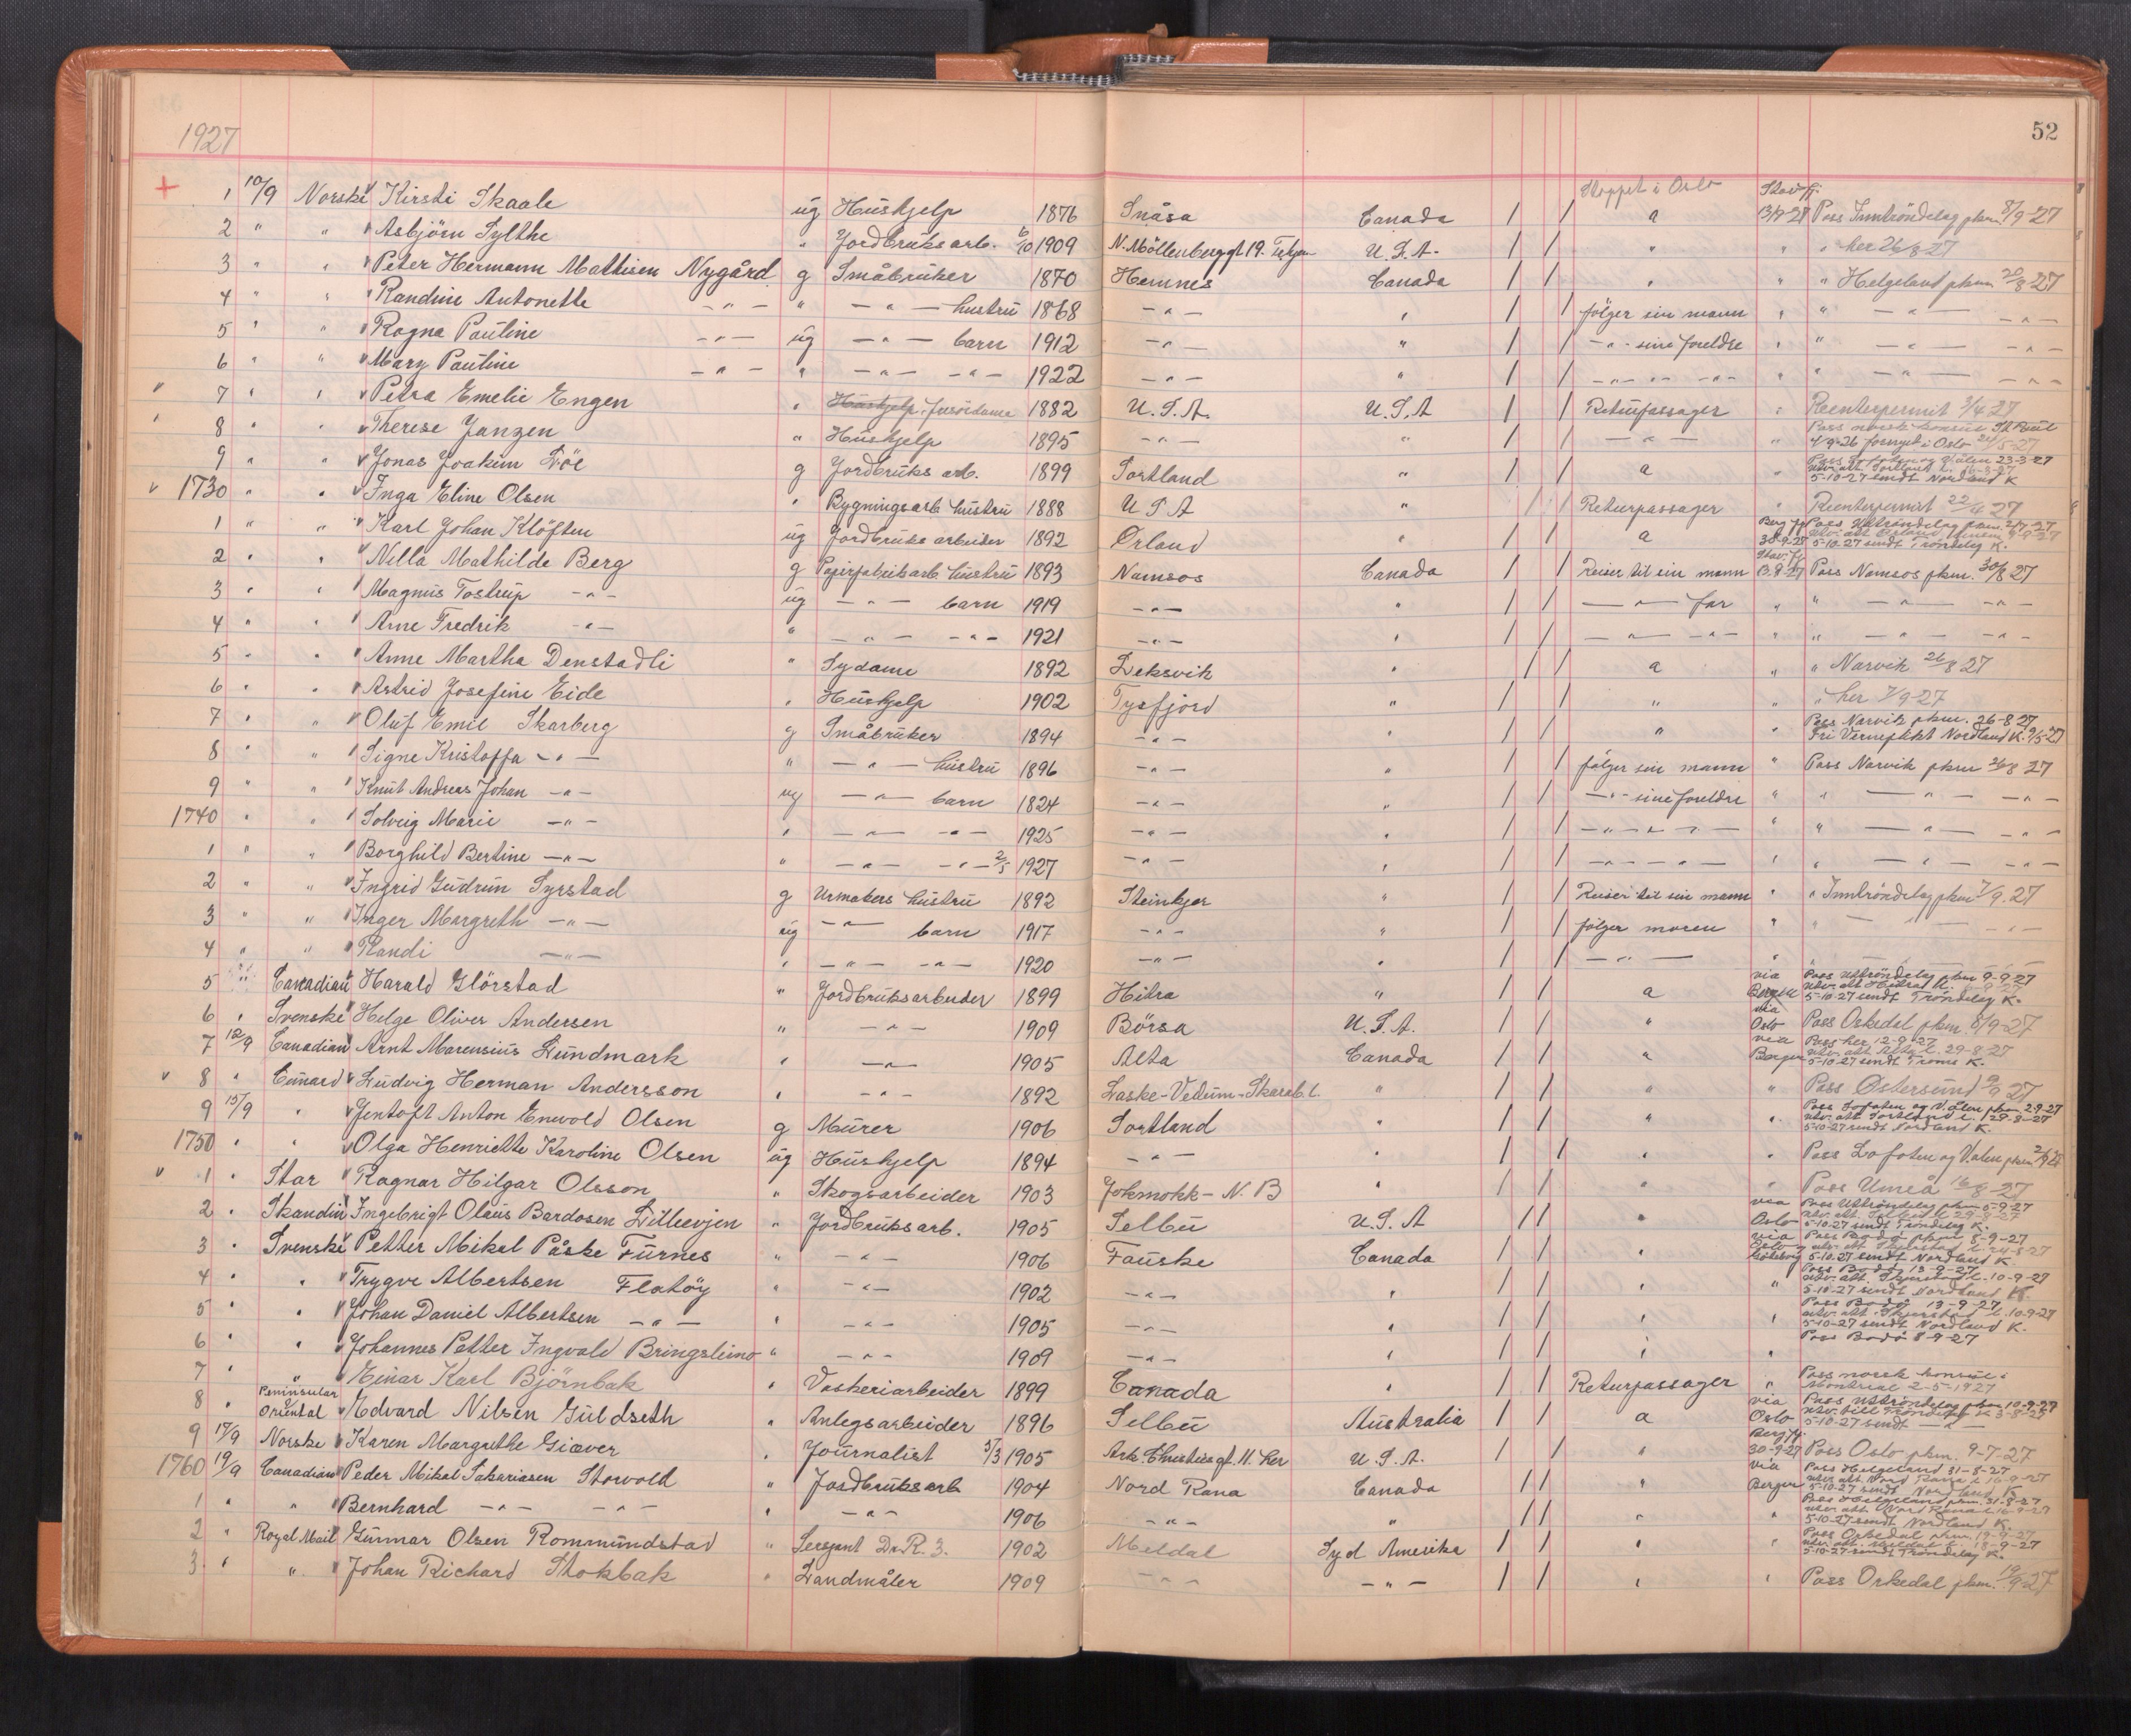 1927 52
1 10/9 Norske Kirsti Skaale ug Hushjelp 1876 Snåsa Canada Stoppet i Oslo a Stav.fj. 13/9-27 Pass Inntröndelag pkm. 8/9-27
2 " " Asbjörn Sylthe " Jordbruksarb. 6/10 1909 N. Möllenberggt 19. U.S.A. " " " her 26/8 27
3 " " Peter Hermann Mathisen Nygård g Småbruker 1870 Hemnes Canada " " " Helgeland pkm 20/8 27
4 " " Randine Antonette -"- " -"- hustru 1868 -"- " fölger sin mann " " -"- -"-
5 " " Ragna Pauline -"- ug -"- barn 1912 -"- " -"- sine foreldre " " -"- -"-
6 " " Mary Pauline -"- " -"- -"- 1922 -"- " -"- -"- -"- " " -"- -"-
7 " " Petra Emelie Engen " Hushjelp 1882 U.S.A. U.S.A Returpassager " Reenterpermit 3/4 27
8 " " Therese Janzen " Hushjelp 1895 -"- " -"- " Pass norsk konsul St Paul 4/9-26 fornyet i Oslo 24/5-27
9 " " Jonas Joakim Löe g Jordbruks arb. 1899 Sortland " a " Pass Lofoten og V.ålen 23-3-27 utv. att Sortland 5-10-27 sendt Nordland K
1730 " " Inga Eline Olsen " Bygningsarb hustru 1888 U S A " Returpassager " Reenterpermit 22/4 27
1 " " Karl Johan Klöften ug Jordbruks arbeider 1892 Örland " a Berg.fj. 30-9-27 Pass Uttröndelag pkm. 2/7-27 5-10-27 sendt Tröndelag K.
2 " " Nilla Mathilde Berg g Papirfabrikarb hustru 1893 Namsos Canada Reiser til sin mann Stav.fj. 13-9-27 Pass Namsos pkm. 30/8 27
3 " " Magnus Tostrup -"- ug -"- barn 1919 -"- " -"- far " " -"- -"-
4 " " Arne Fredrik -"- " -"- -"- 1921 -"- " -"- -"- " " -"- -"-
5 " " Anne Martha Denstadli " Sydame 1892 Leksvik " a " " Narvik 26/8 27
6 " " Astrid Josefine Eide " Hushjelp 1902 Tysfjord " " " " her 7/9-27
7 " " Oluf Emil Skarberg g Småbruker 1894 -"- " " " Pass Narvik pkm. 26-8 27 Fri Vernepkt Nordland K. 9/5-27
8 " " Signe Kristoffa -"- " -"- hustru 1896 -"- " fölger sin mann " Pass Narvik pkm 26/8 27
9 " " Knut Andreas Johan -"- ug -"- barn 1824 -"- " -"- sine foreldre " " -"- -"-
1740 " " Solveig Marie -"- " -"- -"- 1925 -"- " -"- -"- " " -"- -"-
1 " " Borghild Bertine -"- " -"- -"- 2/5 1927 -"- " -"- -"- " " -"- -"-
2 " " Ingrid Gudrun Syrstad g Urmakers hustru 1892 Steinkjer " Reiser til sin mann " " Inntröndelag pkm 7/9.27
3 " " Inger Margreth -"- ug -"- barn 1917 -"- " fölger moren " " -"- -"-
4 " " Randi -"- " -"- -"- 1920 -"- " -"- " " -"- -"-
5 " Canadian Harald Glörstad " Jordbruksarbeider 1899 Hitra " a via Bergen Pass Uttröndelag pkm 9-9-27 utv. att Hitra 5-10-27 sendt Tröndelag K.
6 " Svenske Helge Oliver Andersen " -"- 1909 Börsa U.S.A. " via Oslo Pass Orkedal pkm. 8/9-27
7 12/9 Canadian Arnt Marensius Lundmark " -"- 1905 Alta Canada a via Bergen Pass her 12-9-27 utv. att Alta l. 29-8-27 5-10-27 sendt Troms K.
8 " Cunard Ludvig Herman Andersson " -"- 1892 Laske-Vedum-Skarab. l. " " " Pass Östersund 9/9 27
9 15/9 " Jentoft Anton Enevold Olsen g Murer 1906 Sortland " " " Pass Lofoten og V.ålen pkm 2-9-27 utv. att Sortland l. 29-8-27 5-10-27 sendt Nordland K.
1750 " " Olga Henriette Karoline Olsen ug Hushjelp 1894 -"- " " " Pass Lofoten og V.ålen pkm
1 " Star Ragnar Hilgar Olsson " Skogsarbeider 1903 Jokmokk-N.B " " " Pass Umeå 16/8-27
2 " Skandin Ingebrigt Olaus Bardosen Lillevjen " Jordbruksarb. 1905 Selbu U.S.A " via Oslo Pass Uttröndelag pkm 5-9-27 utv. att. Selbu l. 29-8-27 5-10-27 sendt Tröndelag K.
3 " Svenske Petter Mikal Påske Furnes " -"- 1906 Fauske Canada " via Oslo og Göteborg Pass Bodö pkm 8-9-27 utv. att Skjerstad l. 24-8-27 5-10-27 sendt Nordland K
4 " " Trygve Albertsen Flatöy " -"- 1902 -"- " " " Pass Bodö 13-9-27 utv. att. Skjerstad l. 10-9-27 5-10-27 sendt Nordland K.
5 " " Johan Daniel Albertsen -"- " -"- 1905 -"- " " " Pass Bodö 13-9-27 utv. att. Skjerstad l. 10-9-27 5-10-27 sendt Nordland K.
6 " " Johannes Petter Ingvald Bringsleimo " -"- 1909 -"- " " " Pass Bodö 8-9-27
7 " " Einar Karl Björnbak " Vaskeriarbeider 1899 Canada " Returpassager " Pass norsk konsul i Montreal 2-5-1927
8 " Peninsular Oriental Edvard Nilsen Guldseth " Anlegsarbeider 1896 Selbu Australia a via Oslo Pass Uttröndelag pkm 10-9-27 5-10-27 sendt -"-
9 17/9 Norske Karen Margrethe Giæver " Journalist 3/3 1905 Ark. Christiesgt. 11. her U.S.A. " Berg.fj. 30-9-27 Pass Oslo pkm. 9-7-27
1760 19/9 Canadian Peder Mikal Sakariasen Storvold " Jordbruksarb 1904 Nord Rana Canada " via Bergen Pass Helgeland 31-8-27 utv. att Nord Rana l. 16-9-27 5-10-27 sendt Nordland K
1 " " Bernhard -"- -"- " -"- 1906 -"- " " " Pass Helgeland pkm. 31-8-27 utv. att. Nord Rana l. 16-9-27 5-10-27 sendt Nordland K.
2 " Royal Mail Gunnar Olsen Rommundstad " Sersjant D.R.3. 1902 Meldal Syd Amerika " " Pass Orkedal pkm. 19-9-27 utv. att. Meldal l. 18-9-27 5-10-27 sendt Tröndelag K.
3. " " Johan Richard Stokbak " Landmåler 1909 -"- -"- " " Pass Orkedal pkm. 19/9-27